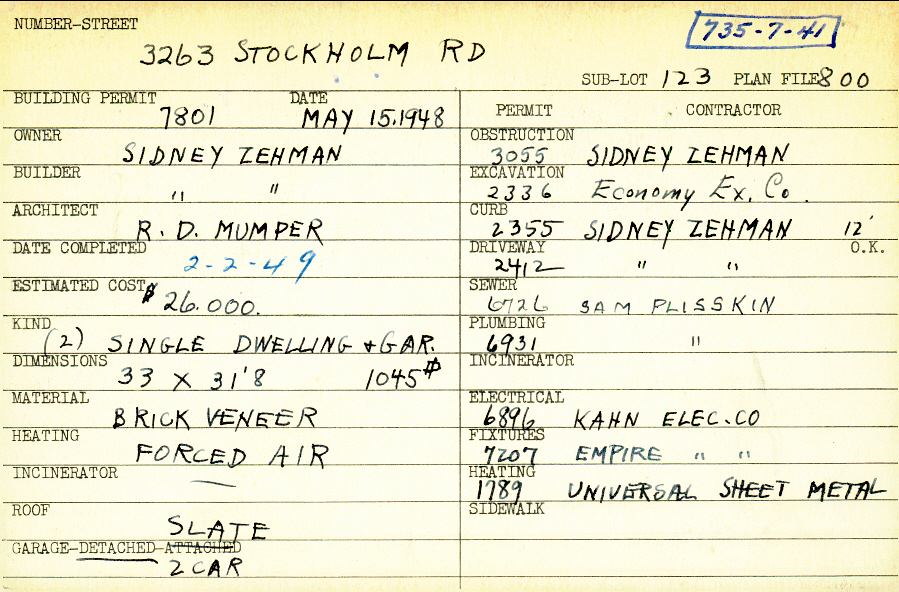 NUMBER-STREET
735-7-41
3263 STOCKHOLM RD
SUB-LOT 123 PLAN FILE 800
BUILDING PERMIT DATE
7801 MAY 15, 1948
OWNER
SIDNEY ZEHMAN
BUILDER
" "
ARCHITECT
R. D. MUMPER
DATE COMPLETED
2-2-49
ESTIMATED COST
$26.000.
KIND
(2) SINGLE DWELLING + GAR.
DIMENSIONS
33 X 31'8 1045#
MATERIAL
BRICK VENEER
HEATING
FORCED AIR
INCINERATOR
—
ROOF
SLATE
GARAGE-DETACHED-ATTACHED
2 CAR
PERMIT CONTRACTOR
OBSTRUCTION
3055 SIDNEY ZEHMAN
EXCAVATION
2336 Economy Ex. Co.
CURB
2355 SIDNEY ZEHMAN 12'
DRIVEWAY O.K.
2412 " "
SEWER
6726 SAM PLISSKIN
PLUMBING
6931 "
INCINERATOR
ELECTRICAL
6896 KAHN ELEC. CO
FIXTURES
7207 EMPIRE " "
HEATING
1789 UNIVERSAL SHEET METAL
SIDEWALK